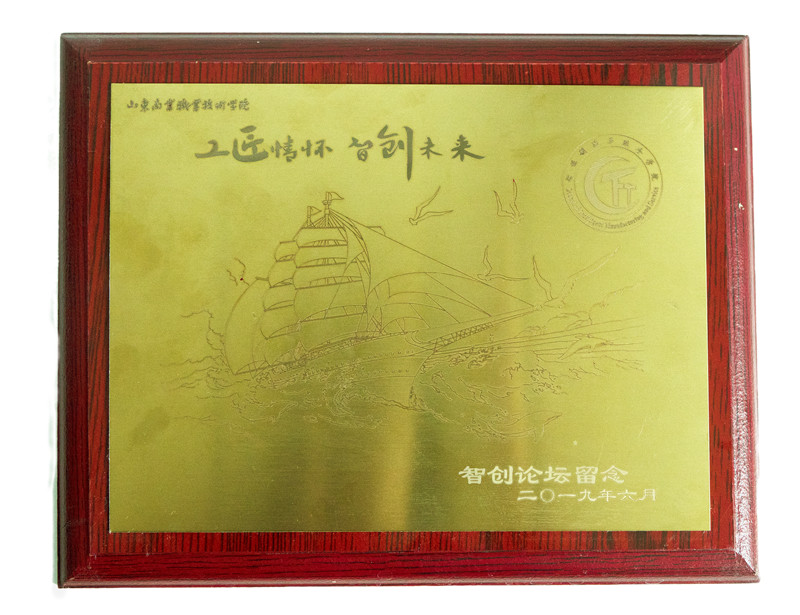 山东商业职业技术学院
工匠情怀 智创未来
智创论坛留念
二〇一九年六月